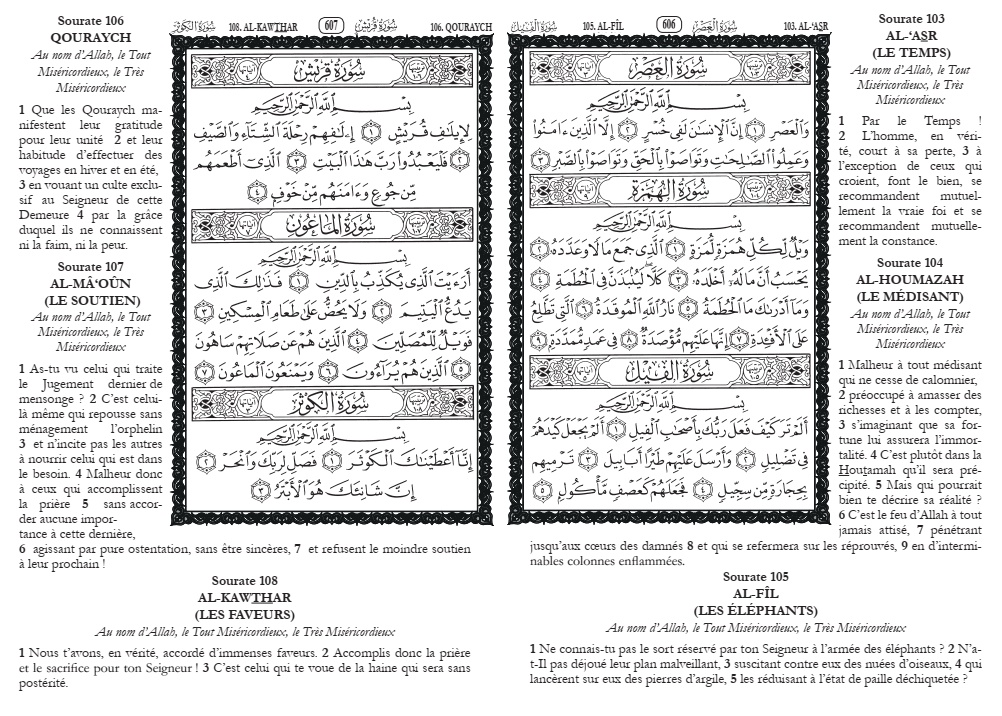 606
سُورَةُ الفِيل
105. AL-FÎL
سُورَةُ العَصْر
103. AL-‘ASR
سُورَةُ العَصْرِ
بِسْمِ ٱللَّهِ ٱلرَّحْمَٰنِ ٱلرَّحِيمِ
وَٱلْعَصْرِ ١ إِنَّ ٱلْإِنسَٰنَ لَفِى خُسْرٍ ٢ إِلَّا ٱلَّذِينَ ءَامَنُوا۟
وَعَمِلُوا۟ ٱلصَّٰلِحَٰتِ وَتَوَاصَوْا۟ بِٱلْحَقِّ وَتَوَاصَوْا۟ بِٱلصَّبْرِ ٣
سُورَةُ الهُمَزَةِ
بِسْمِ ٱللَّهِ ٱلرَّحْمَٰنِ ٱلرَّحِيمِ
وَيْلٌ لِّكُلِّ هُمَزَةٍ لُّمَزَةٍ ١ ٱلَّذِى جَمَعَ مَالًا وَعَدَّدَهُۥ ٢
يَحْسَبُ أَنَّ مَالَهُۥٓ أَخْلَدَهُۥ ٣ كَلَّا لَيُنۢبَذَنَّ فِى ٱلْحُطَمَةِ ٤
وَمَآ أَدْرَىٰكَ مَا ٱلْحُطَمَةُ ٥ نَارُ ٱللَّهِ ٱلْمُوقَدَةُ ٦ ٱلَّتِى تَطَّلِعُ
عَلَى ٱلْأَفْـِٔدَةِ ٧ إِنَّهَا عَلَيْهِم مُّؤْصَدَةٌ ٨ فِى عَمَدٍ مُّمَدَّدَةٍۭ ٩
سُورَةُ الفِيلِ
بِسْمِ ٱللَّهِ ٱلرَّحْمَٰنِ ٱلرَّحِيمِ
أَلَمْ تَرَ كَيْفَ فَعَلَ رَبُّكَ بِأَصْحَٰبِ ٱلْفِيلِ ١ أَلَمْ يَجْعَلْ كَيْدَهُمْ
فِى تَضْلِيلٍ ٢ وَأَرْسَلَ عَلَيْهِمْ طَيْرًا أَبَابِيلَ ٣ تَرْمِيهِم
بِحِجَارَةٍ مِّن سِجِّيلٍ ٤ فَجَعَلَهُمْ كَعَصْفٍ مَّأْكُولٍۭ ٥
Sourate 103
AL-‘ASR
(LE TEMPS)
Au nom d’Allah, le Tout
Miséricordieux, le Très
Miséricordieux
1 Par le Temps !
2 L’homme, en véri-
té, court à sa perte, 3 à
l’exception de ceux qui
croient, font le bien, se
recommandent mutuel-
lement la vraie foi et se
recommandent mutuelle-
ment la constance.
Sourate 104
AL-HOUMAZAH
(LE MÉDISANT)
Au nom d’Allah, le Tout
Miséricordieux, le Très
Miséricordieux
1 Malheur à tout médisant
qui ne cesse de calomnier,
2 préoccupé à amasser des
richesses et à les compter,
3 s’imaginant que sa for-
tune lui assurera l’immor-
talité. 4 C’est plutôt dans la
Houtamah qu’il sera pré-
cipité. 5 Mais qui pourrait
bien te décrire sa réalité ?
6 C’est le feu d’Allah à tout
jamais attisé, 7 pénétrant
jusqu’aux cœurs des damnés 8 et qui se refermera sur les réprouvés, 9 en d’intermi-
nables colonnes enflammées.
Sourate 105
AL-FÎL
(LES ÉLÉPHANTS)
Au nom d’Allah, le Tout Miséricordieux, le Très Miséricordieux
1 Ne connais-tu pas le sort réservé par ton Seigneur à l’armée des éléphants ? 2 N’a-
t-Il pas déjoué leur plan malveillant, 3 suscitant contre eux des nuées d’oiseaux, 4 qui
lancèrent sur eux des pierres d’argile, 5 les réduisant à l’état de paille déchiquetée ?
سُورَةُ الكَوْثَر
108. AL-KAWTHAR
607
سُورَةُ قُرَيْش
106. QOURAYCH
سُورَةُ قُرَيْشٍ
بِسْمِ ٱللَّهِ ٱلرَّحْمَٰنِ ٱلرَّحِيمِ
لِإِيلَٰفِ قُرَيْشٍ ١ إِۦلَٰفِهِمْ رِحْلَةَ ٱلشِّتَآءِ وَٱلصَّيْفِ
٢ فَلْيَعْبُدُوا۟ رَبَّ هَٰذَا ٱلْبَيْتِ ٣ ٱلَّذِىٓ أَطْعَمَهُم
مِّن جُوعٍ وَءَامَنَهُم مِّنْ خَوْفٍۭ ٤
سُورَةُ المَاعُونِ
بِسْمِ ٱللَّهِ ٱلرَّحْمَٰنِ ٱلرَّحِيمِ
أَرَءَيْتَ ٱلَّذِى يُكَذِّبُ بِٱلدِّينِ ١ فَذَٰلِكَ ٱلَّذِى
يَدُعُّ ٱلْيَتِيمَ ٢ وَلَا يَحُضُّ عَلَىٰ طَعَامِ ٱلْمِسْكِينِ ٣
فَوَيْلٌ لِّلْمُصَلِّينَ ٤ ٱلَّذِينَ هُمْ عَن صَلَاتِهِمْ سَاهُونَ
٥ ٱلَّذِينَ هُمْ يُرَآءُونَ ٦ وَيَمْنَعُونَ ٱلْمَاعُونَ ٧
سُورَةُ الكَوْثَرِ
بِسْمِ ٱللَّهِ ٱلرَّحْمَٰنِ ٱلرَّحِيمِ
إِنَّآ أَعْطَيْنَٰكَ ٱلْكَوْثَرَ ١ فَصَلِّ لِرَبِّكَ وَٱنْحَرْ ٢
إِنَّ شَانِئَكَ هُوَ ٱلْأَبْتَرُ ٣
Sourate 106
QOURAYCH
Au nom d’Allah, le Tout
Miséricordieux, le Très
Miséricordieux
1 Que les Qouraych ma-
nifestent leur gratitude
pour leur unité 2 et leur
habitude d’effectuer des
voyages en hiver et en été,
3 en vouant un culte exclu-
sif au Seigneur de cette
Demeure 4 par la grâce
duquel ils ne connaissent
ni la faim, ni la peur.
Sourate 107
AL-MÂ‘OÛN
(LE SOUTIEN)
Au nom d’Allah, le Tout
Miséricordieux, le Très
Miséricordieux
1 As-tu vu celui qui traite
le Jugement dernier de
mensonge ? 2 C’est celui-
là même qui repousse sans
ménagement l’orphelin
3 et n’incite pas les autres
à nourrir celui qui est dans
le besoin. 4 Malheur donc
à ceux qui accomplissent
la prière 5 sans accor-
der aucune impor-
tance à cette dernière,
6 agissant par pure ostentation, sans être sincères, 7 et refusent le moindre soutien
à leur prochain !
Sourate 108
AL-KAWTHAR
(LES FAVEURS)
Au nom d’Allah, le Tout Miséricordieux, le Très Miséricordieux
1 Nous t’avons, en vérité, accordé d’immenses faveurs. 2 Accomplis donc la prière
et le sacrifice pour ton Seigneur ! 3 C’est celui qui te voue de la haine qui sera sans
postérité.